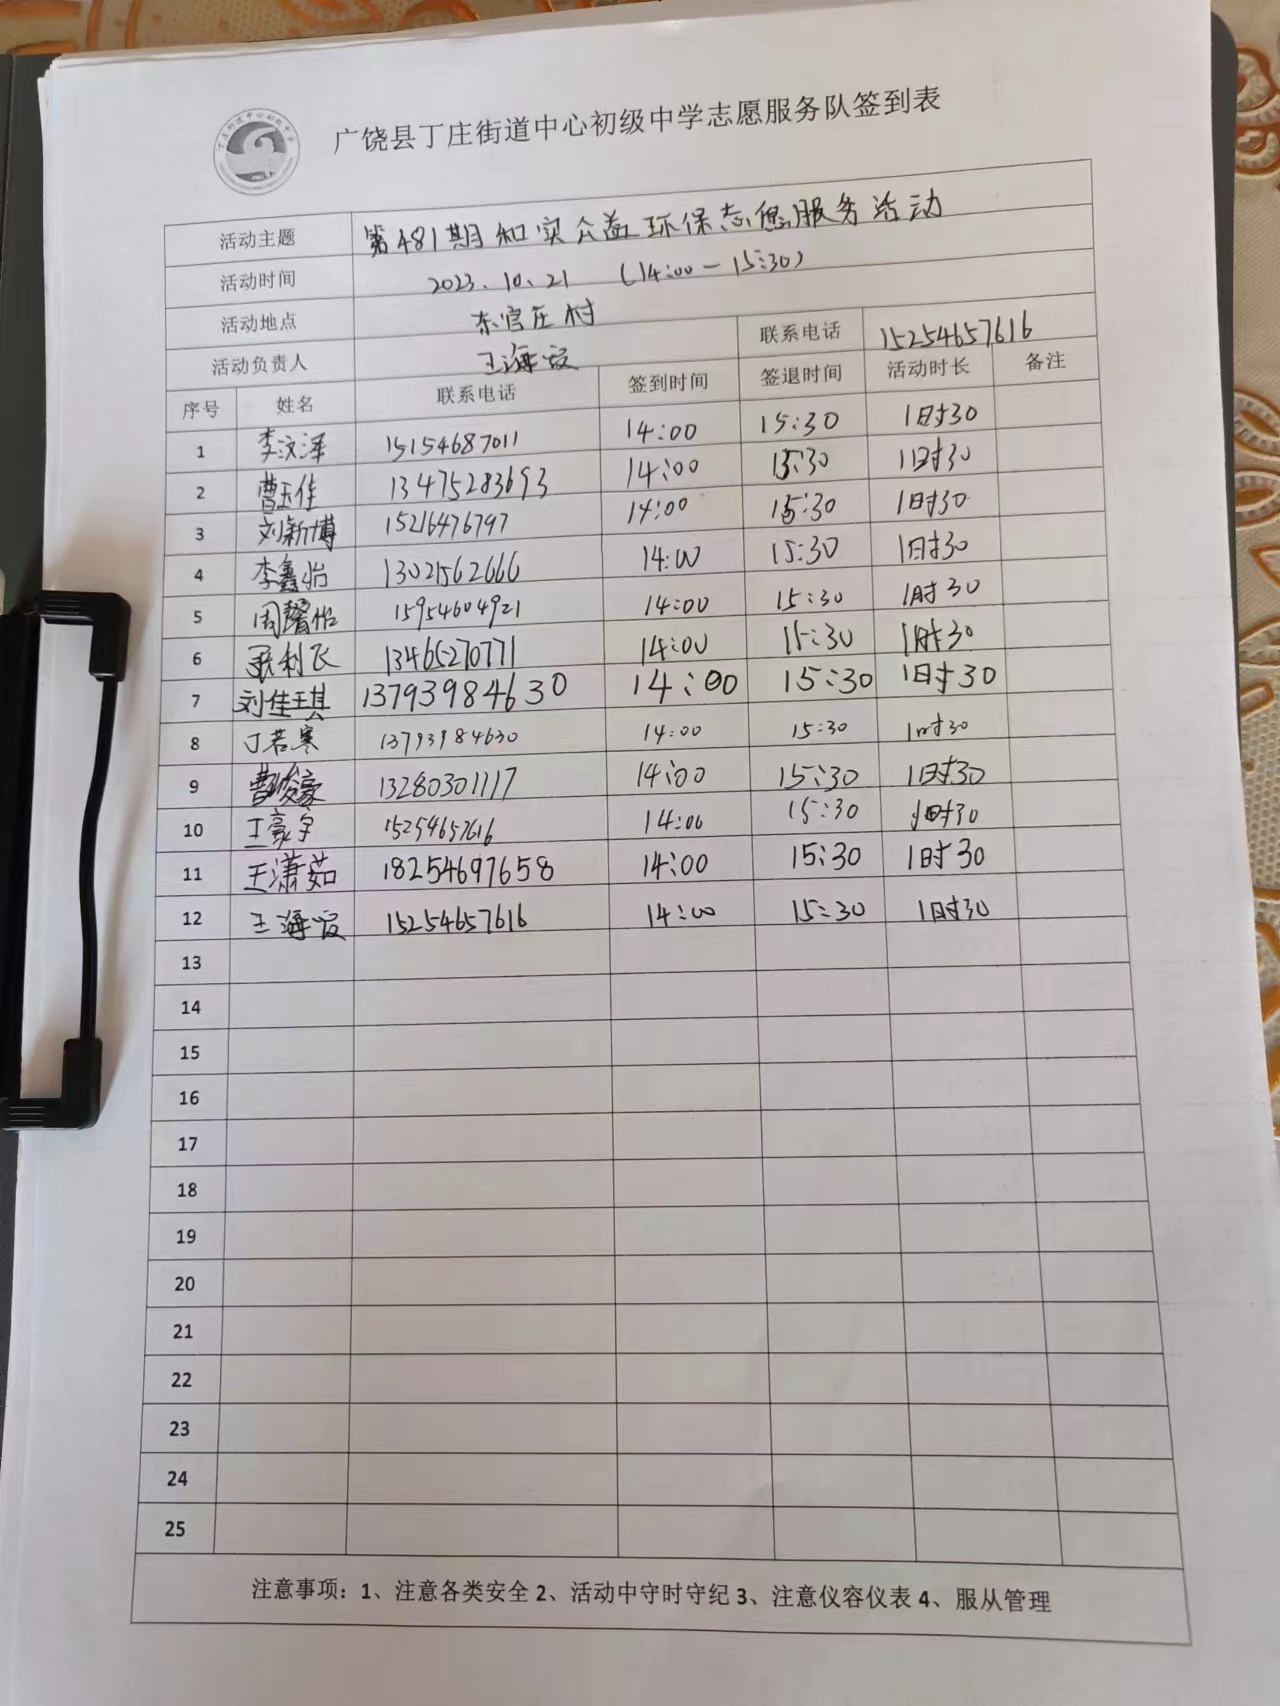 广饶县丁庄街道中心初级中学志愿服务队签到表
活动主题 第481期和实公益环保志愿服务活动
活动时间 2023.10.21 (14:00-15:30)
活动地点 东官庄村
活动负责人 王海 联系电话 15254657616
序号 姓名 联系电话 签到时间 签退时间 活动时长 备注
1 李汶泽 15154687011 14:00 15:30 1时30
2 曹玉佳 13475283693 14:00 15:30 1时30
3 刘新博 15216476797 14:00 15:30 1时30
4 李鑫怡 13021562666 14:00 15:30 1时30
5 周馨怡 15954604921 14:00 15:30 1时30
6 利飞 13465270771 14:00 15:30 1时30
7 刘佳琪 13793984630 14:00 15:30 1时30
8 丁若寒 13793984630 14:00 15:30 1时30
9 曹俊豪 13280301117 14:00 15:30 1时30
10 王豪宇 15254657616 14:00 15:30 1时30
11 王潇茹 18254697658 14:00 15:30 1时30
12 王海 15254657616 14:00 15:30 1时30
13
14
15
16
17
18
19
20
21
22
23
24
25
注意事项：1、注意各类安全 2、活动中守时守纪 3、注意仪容仪表 4、服从管理